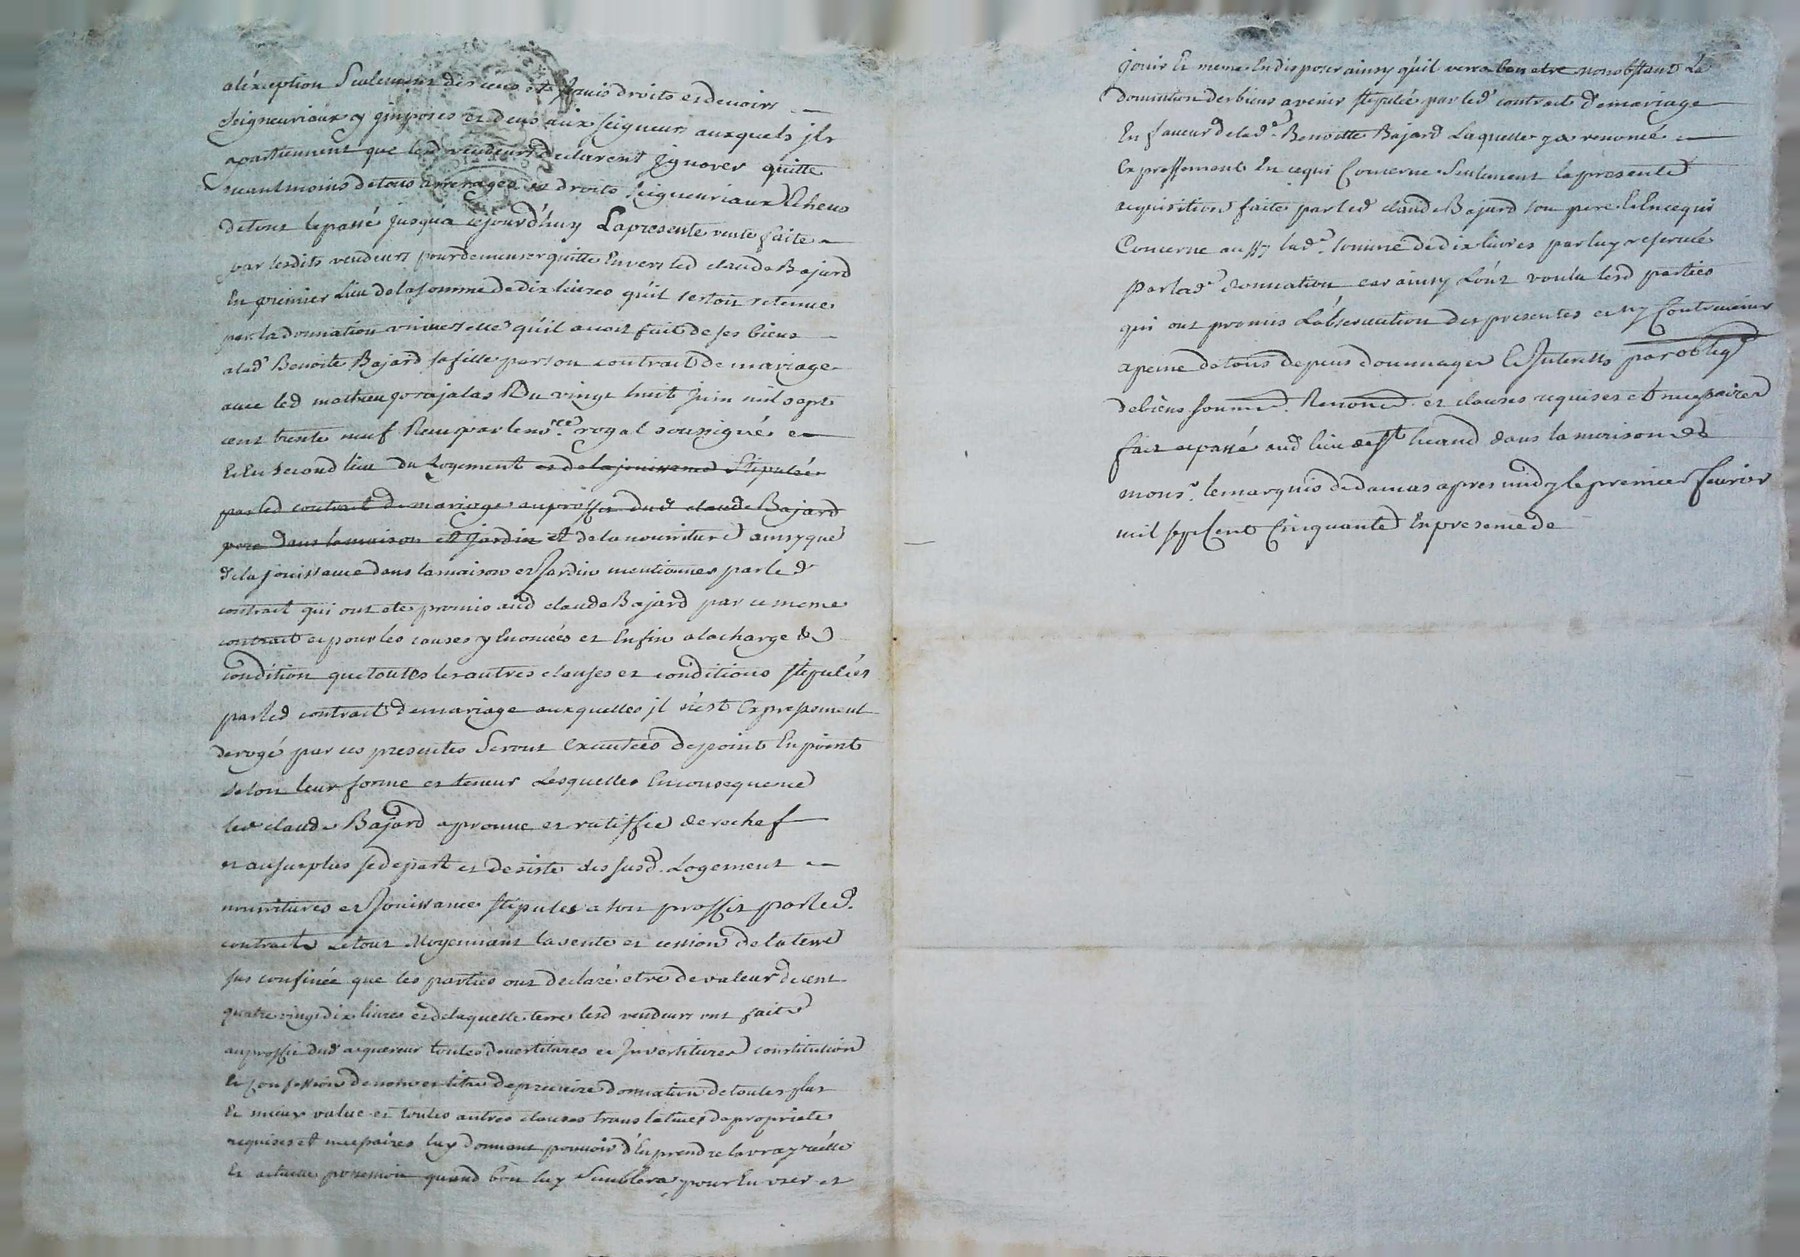 aléxception Seulement des cens et servis droits et devoirs
seigneuriaux y imposes et deus aux seigneurs auxquels ils
apartiennent que lesd vendeurs declarent ignorer quitte
neantmoins de tous arrerages et droits seigneuriaux Echeus
de tout le passé jusqu'a ce jourd'huy La presente vente faite
par lesdits vendeurs pour demeurer quitte Envers led claude Bajard
En premier Lieu de la somme de dix livres qu'il s'estoit retenue
par la donnation universelle qu'il avoit fait de ses biens
a lad Benoite Bajard sa fille par son contrait de mariage
avec led mathieu Du vingt huit juin mil sept
cent trente neuf Recu par le no.re royal soussigné et
Et En second lieu du Logement et de la jouissance stipulée
par led contrait de mariage au proffit dud claude Bajard
pere dans la maison et Jardin et de la nourriture ainsy que
de la jouissance dans la maison et Jardin mentionnes par le d
contrait qui ont ete promis aud claude Bajard par ce meme
contrait et pour les causes y Enoncées et Enfin a la charge &
condition que toutes les autres clauses et conditions stipulées
par led contrait de mariage auxquelles jl n'est Expressement
derogé par ces presentes Seront Executées de point En point
selon leur forme et teneur Lesquelles En consequence
led claude Bajard aprouve et ratiffie derechef
et au surplus se depart et desiste des susd. Logement
nourritures et Jouissance stipules a son proffit par led.
contrait Le tout Moyennant la vente et cession de la terre
sus confinée que les parties ont declaré etre de valeur de cent
quatre vingt dix livres et de laquelle terre lesd vendeurs ont fait
au proffit dud acquereur toutes devestitures et Investitures constitution
Et Confession de nom et titre de precaire donnation de toutes plus
Et mieux value et toutes autres clauses translatives de propriete
requises et necessaires luy donnant pouvoir d'En prendre la vray réélle
Et actuelle possession quand bon luy Semblera pour En user et
jouir Et meme En disposer ainsy qu'il verra bon etre nonobstant La
donnation des biens avenir stipulée par led contrait de mariage
En faveur de lad.e Benoitte Bajard Laquelle y a renoncé
Expressement En ce qui Concerne Seulement la presente
acquisition faite par led claude Bajard son pere Et En ce qui
Concerne aussy lad.e somme de dix livres par luy reservée
par lad.e donnation car ainsy L'ont voulu lesd parties
qui ont promis L'observation des presentes et n'y Contrevenir
a peine de tous depens dommages et Interests par oblig.
de biens soumed. Renonced. et clauses requises et necessaires
fait et passé aud lieu de st huand dans la maison de
mons.r le marquis de damas apres midy le premier fevrier
mil sept Cent Cinquante En presence de